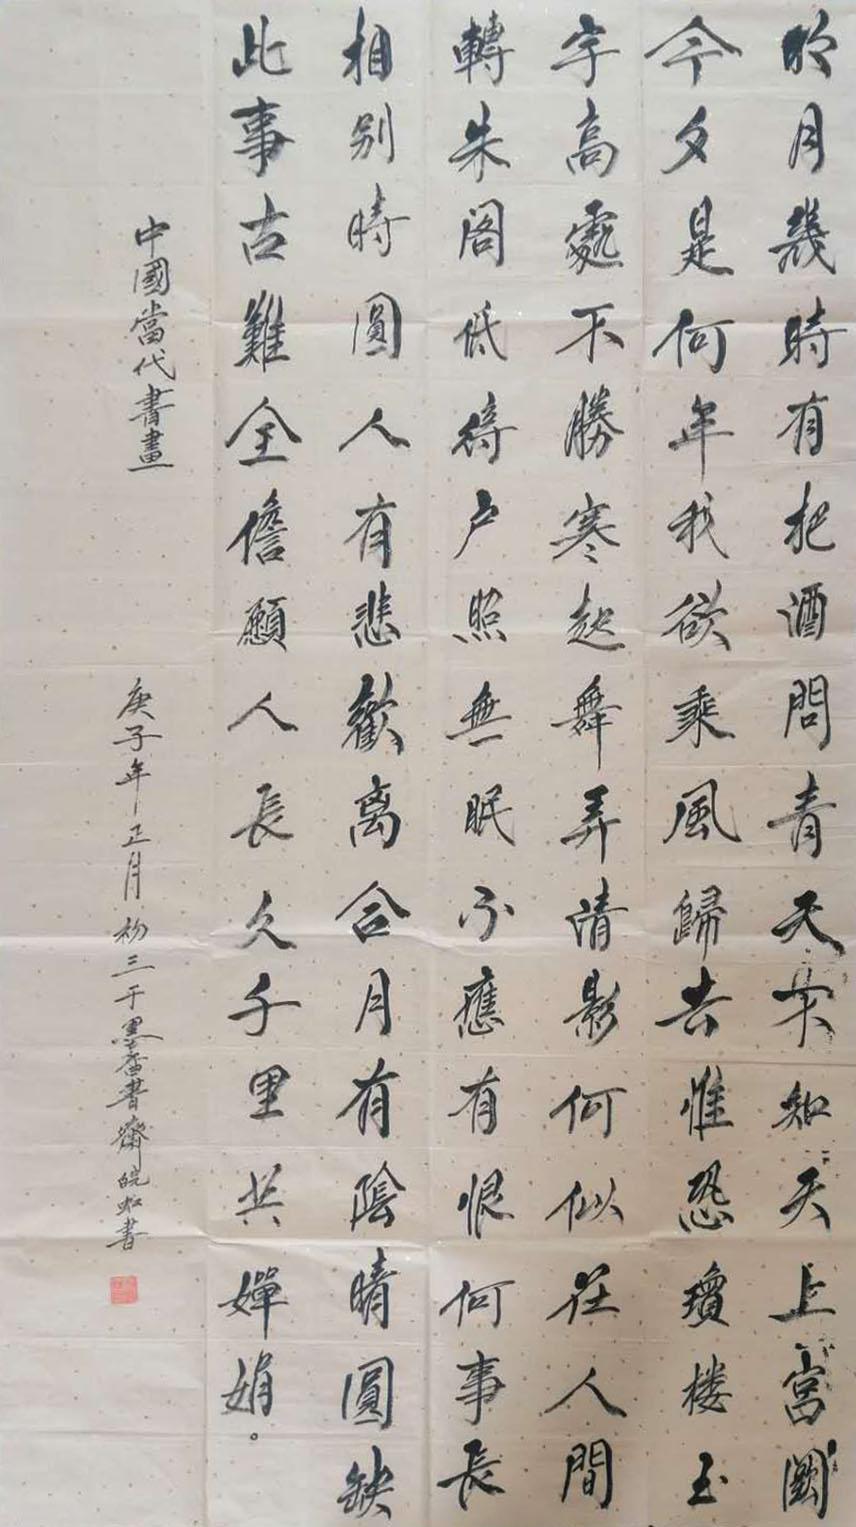 明月幾時有把酒問青天不知天上宮闕
今夕是何年我欲乘風歸去惟恐瓊楼玉
宇高處不勝寒起舞弄清影何似在人間
轉朱阁低綺户照無眠不應有恨何事長
相别時圓人有悲歡离合月有陰晴圓缺
此事古難全儋願人長久千里共嬋娟。
中國當代書畫
庚子年正月初三于墨香書齋皖虹書